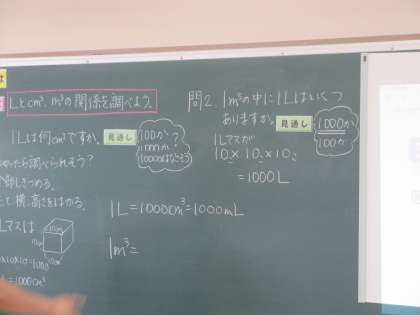 Lとcm³、m³の関係を調べよう。
1Lは何cm³ですか。
見通し
100か
1000か
?
調べられそう?
たて、横、高さをはかる。
Lマスは
10cm
10×10×10=1000
=1000cm³
1L=1000cm³=1000mL
1m³=
問2. 1m³の中に1Lはいくつ
ありますか。
見通し
1000か
100か
1Lマスが
10×10×10
=1000L